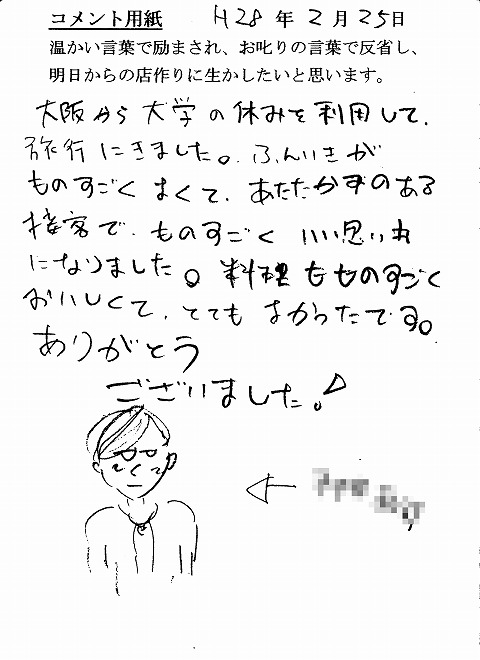 コメント用紙 H28年2月25日
温かい言葉で励まされ、お叱りの言葉で反省し、
明日からの店作りに生かしたいと思います。
大阪から大学の休みを利用して、
旅行にきました。ふんいきが
ものすごくよくて、あたたかみのある
接客で、ものすごくいい思い出
になりました。料理もものすごく
おいしくて、とてもよかったです。
ありがとう
ございました!